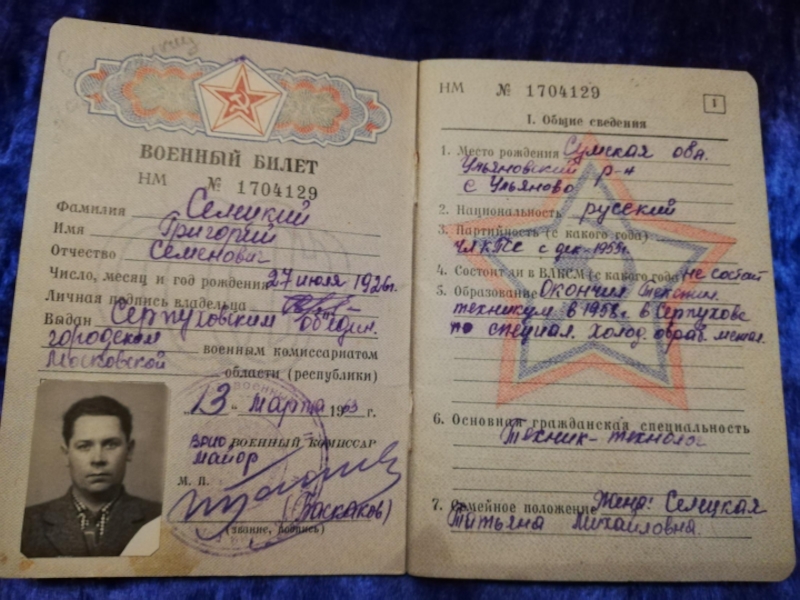 ВОЕННЫЙ БИЛЕТ
НМ № 1704129
Фамилия Селецкий
Имя Григорий
Отчество Семенович
Число, месяц и год рождения 27 июля 1926г.
Личная подпись владельца
Выдан Серпуховским объедин.
городском военным комиссариатом
Московской области (республики)
13 " марта 1963 г.
врио ВОЕННЫЙ КОМИССАР
майор
М. П.
(Баскаков)
(звание, подпись)
НМ № 1704129
1
I. Общие сведения
1. Место рождения Сумская обл.
Ульяновский р-н
с Ульяново
2. Национальность русский
3. Партийность (с какого года)
чл КПС с дек 1955г.
4. Состоит ли в ВЛКСМ (с какого года) не состоит
5. Образование Окончил текстил.
техникум в 1958г в Серпухове
по специал. холод. обраб. метал.
6. Основная гражданская специальность
Техник-технолог
7. Семейное положение Жена: Селецкая
Татьяна Михайловна.